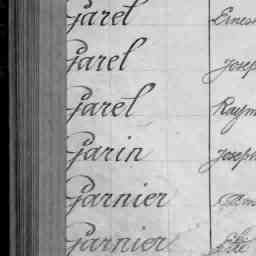 Garel Ernes
Garel Josep
Garel Raym
Garin Joseph
Garnier
Garnier